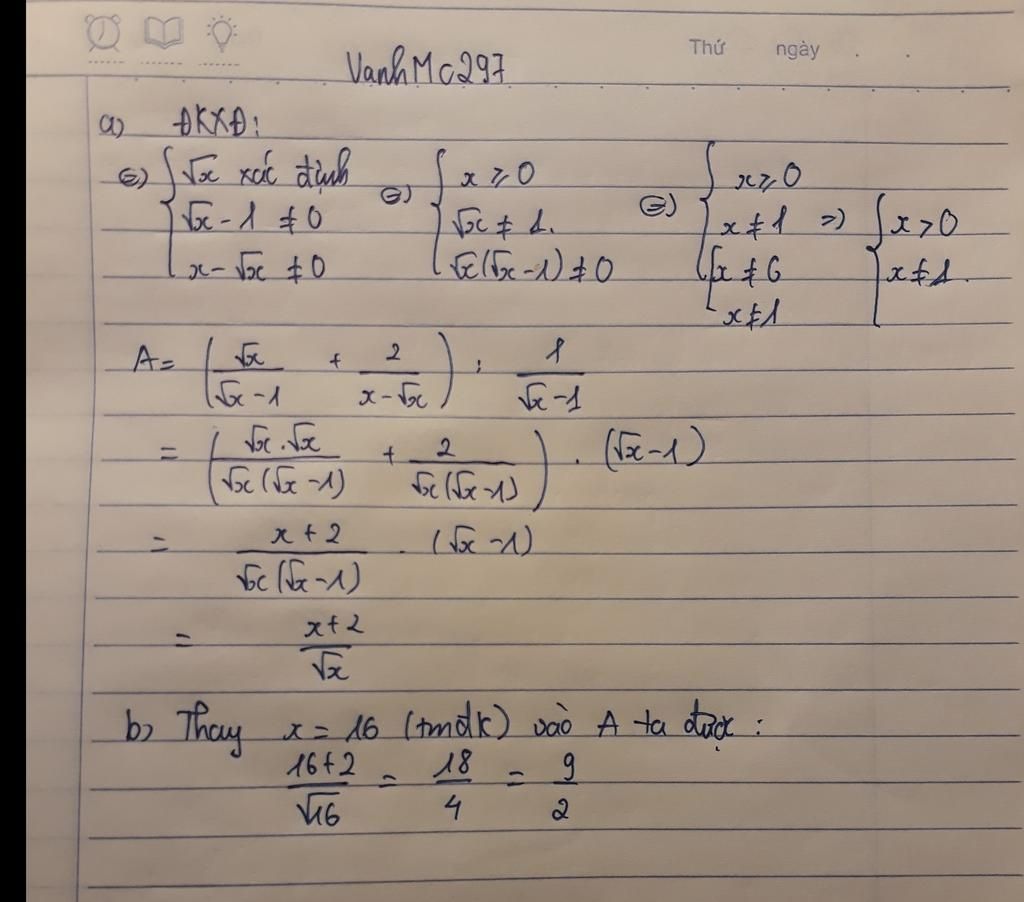 Thứ ngày . .
VanhMc297
a) ĐKXĐ:
⇔) { √x xác định ⇔) { x ⩾ 0 ⇔) { x ⩾ 0
√x - 1 ≠ 0 √x ≠ 1. x ≠ 1 => { x > 0
x - √x ≠ 0 √x(√x - 1) ≠ 0 [ x ≠ 0 x ≠ 1.
x ≠ 1
A = ( √x/(√x - 1) + 2/(x - √x) ) : 1/(√x - 1)
= ( √x . √x/(√x(√x - 1)) + 2/(√x(√x - 1)) ) . (√x - 1)
= (x + 2)/(√x(√x - 1)) . (√x - 1)
= (x + 2)/√x
b) Thay x = 16 (tmđk) vào A ta được :
(16 + 2)/√16 = 18/4 = 9/2